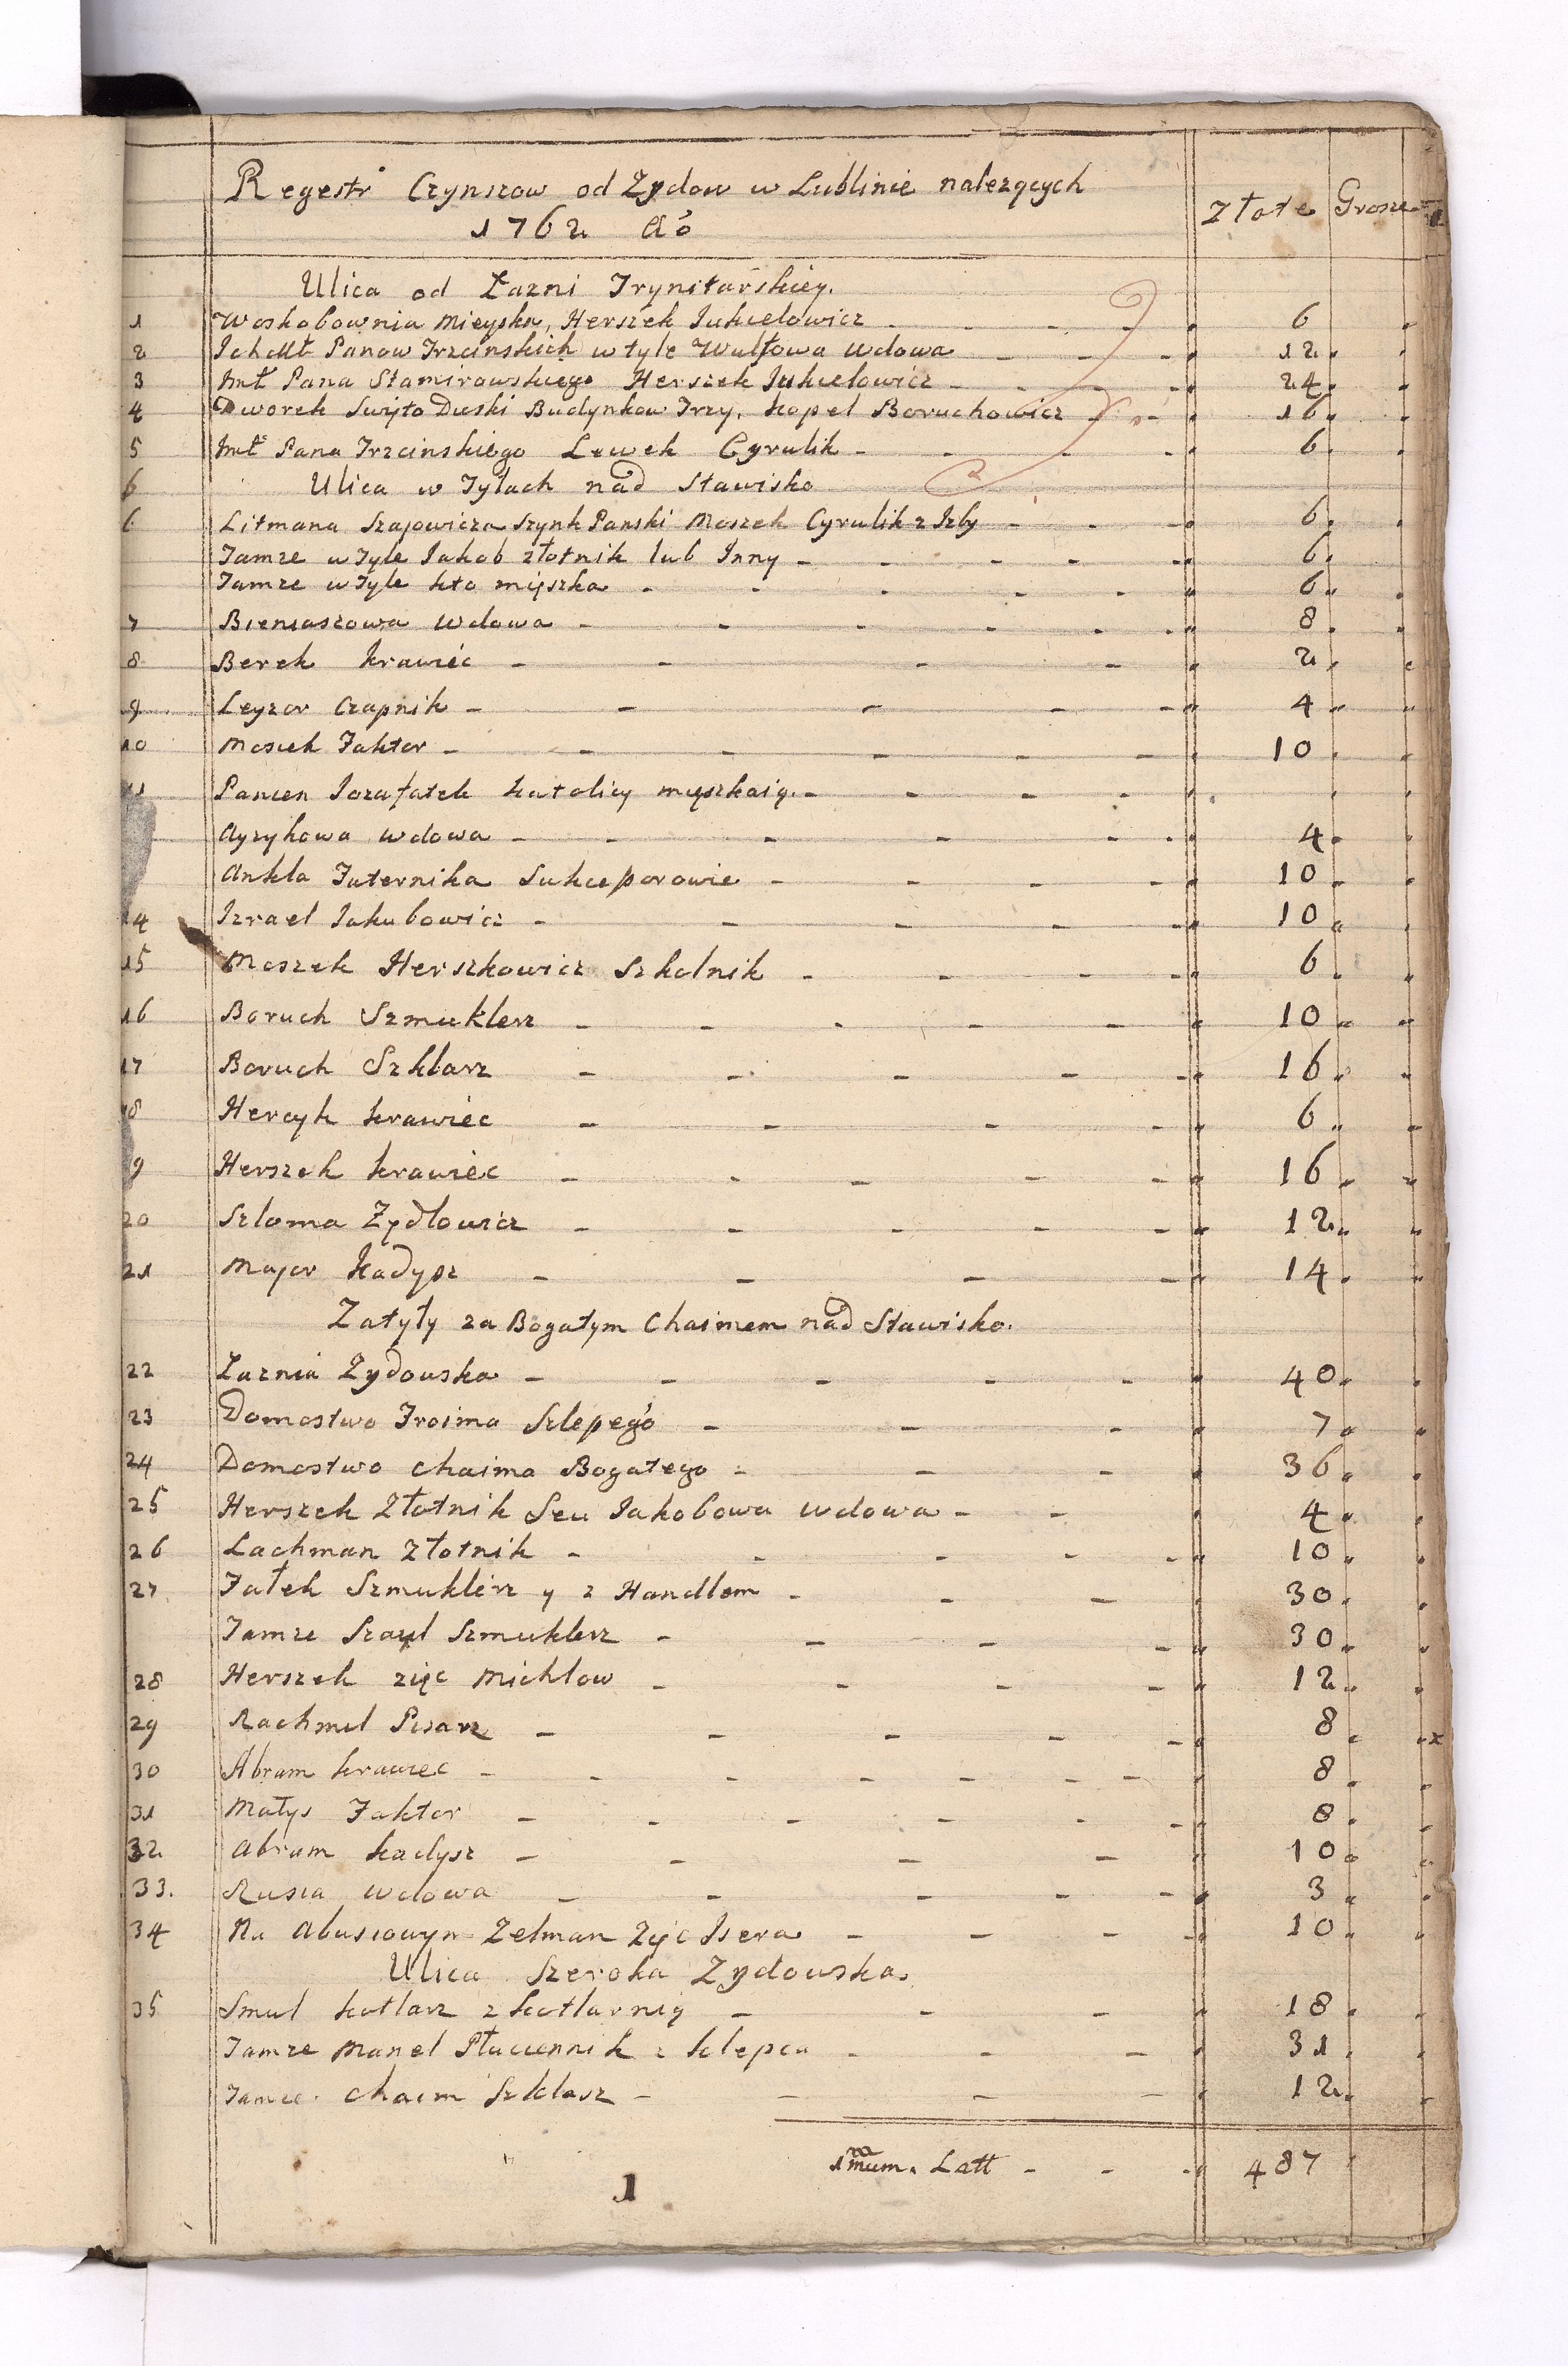 Regestr Czynszow od Zydow w Lublinie nalezących
1762 Aō
Złote Grosze
Ulica od Łazni Trynitarskiey.
1 Woskobownia Mieyska, Herszek Iukielowicz - - - - " 6 " "
2 Ich Mł Panow Trzcinskich w tyle Wulfowa Wdowa - - - " 12 " "
3 Imł Pana Stamirowskiego Herszek Iukielowicz - - - - " 24 " "
4 Dworek Swięto Duski Budynkow Trzy, Kopel Boruchowicz - - " 16 " "
5 Imł Pana Trzcinskiego Lewek Cyrulik - - - - " 6 " "
6 Ulica w Tylach nad Stawisko
6 Litmana Szajowicza Szynk Panski Moszek Cyrulik z Izby - - - " 6 " "
Tamze w Tyle Iakob złotnik lub Inny - - - - - " 6 "
Tamze w Tyle kto mięszka - - - - - " 6 " "
7 Bieniaszowa Wdowa - - - - - - " 8 " "
8 Berek krawiec - - - - " 2 " "
9 Leyzor Czapnik - - - - - " 4 " "
10 Mosiek Faktor - - - - - - " 10 " "
11 Panien Iozafatek katolicy mięszkaią. - - - - " " "
Ayzykowa wdowa - - - - - - " 4 " "
Ankla Futernika Sukcessorowie - - - - " 10 " "
14 Izrael Iakubowicz - - - - - " 10 " "
15 Moszek Herszkowicz Szkolnik - - - - " 6 " "
16 Boruch Szmuklerz - - - - - " 10 " "
17 Boruch Szklarz - - - - - " 16 " "
18 Hercyk krawiec - - - - " 6 " "
19 Herszek krawiec - - - - - " 16 " "
20 Szloma Zydlowicz - - - - - " 12 " "
21 Major Kadysz - - - - " 14 " "
Zatyły za Bogatym Chaimem nad Stawisko.
22 Łaznia Zydowska - - - - - " 40 " "
23 Domostwo Froima Szlepego - - - " 7 " "
24 Domostwo Chaima Bogatego - - - " 36 " "
25 Herszek Złotnik Seu Iakobowa wdowa - - " 4 " "
26 Lachman Złotnik - - - - - " 10 " "
27 Fałek Szmuklerz y z Handlem - - - " 30 " "
Tamze Szayl Szmuklerz - - - - " 30 " "
28 Herszek zięc Michlow - - - - " 12 " "
29 Rachmil Pisarz - - - - - " 8 " " x
30 Abram krawiec - - - - - - - " 8 " "
31 Małys Faktor - - - - - - " 8 " "
32 Abram kadysz - - - - " 10 " "
33. Rusia wdowa - - - - - " 3 " "
34 Na Abusiowym Zelman Zięc Isera - - - - " 10 " "
Ulica Szeroka Zydowska.
35 Smul kotlarz z kotlarnią - - - " 18 " "
Tamze Manel Płuciennik z sklepu - - - " 31 " "
Tamze. Chaim Szklarz - - - - " 12 " "
1mum. Latt - - - " 487 "
1